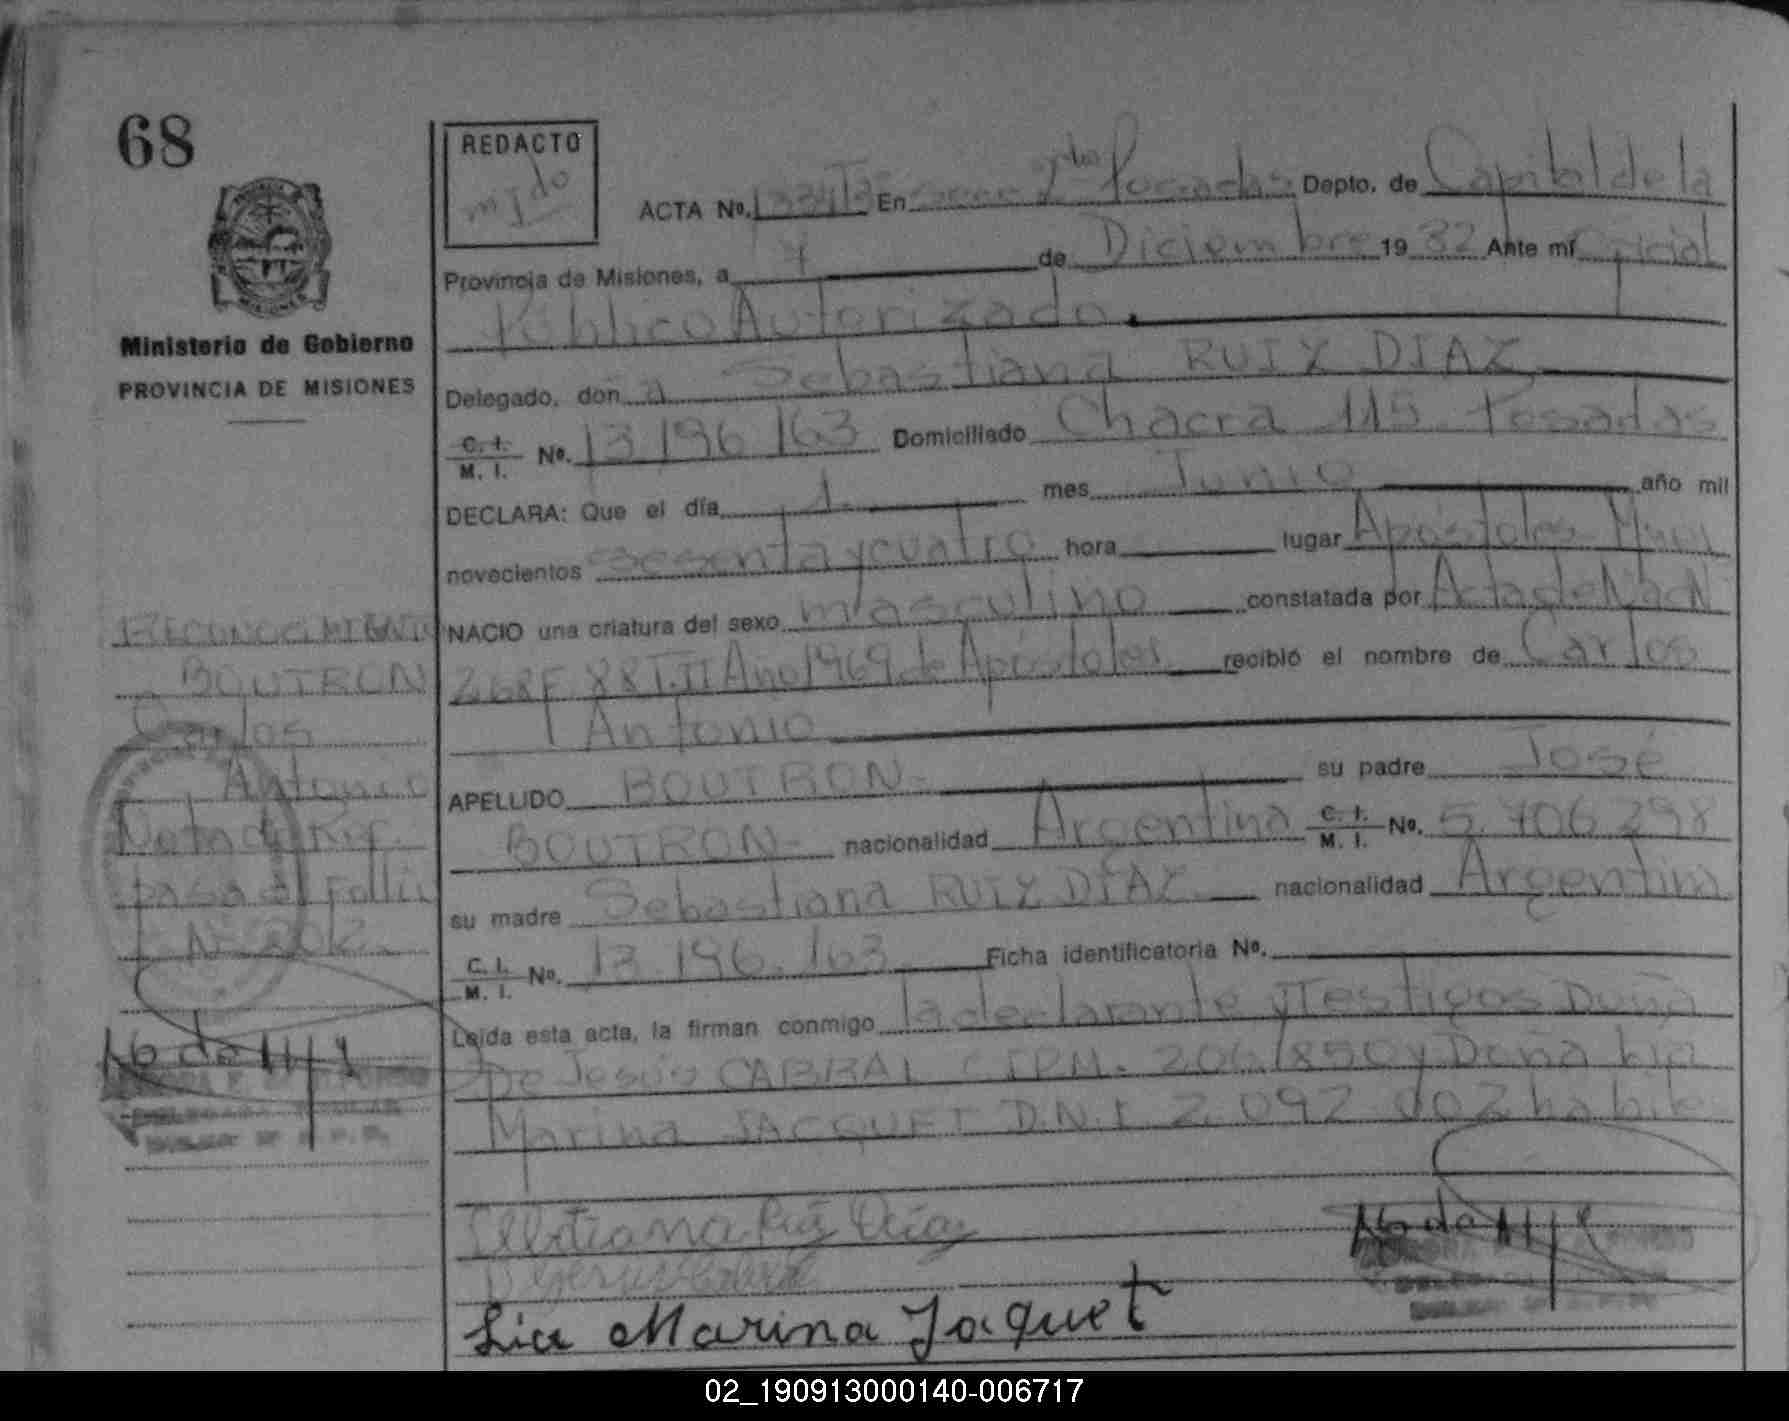 68
REDACTO
ACTA No. En Secc. 2da Posadas Depto. de Capital de la
Provincia de Misiones, a 7 de Diciembre 19 82 Ante mí Oficial
Público Autorizado.
Ministerio de Gobierno
PROVINCIA DE MISIONES
Delegado, don a Sebastiana RUIZ DIAZ
C. I. M. I. No. 13.196.163 Domiciliado Chacra 115 Posadas
DECLARA: Que el día 1 mes Junio año mil
novecientos sesenta y cuatro hora lugar Apóstoles Mnes
NACIO una criatura del sexo masculino constatada por Acta de Nac N
268 F 88 T. II Año 1969 de Apóstoles recibió el nombre de Carlos
Antonio
APELLIDO BOUTRON su padre José
BOUTRON nacionalidad Argentina C. I. M. I. No. 5.706.298
su madre Sebastiana RUIZ DIAZ nacionalidad Argentina
C. I. M. I. No. 13.196.163 Ficha identificatoria No.
Leída esta acta, la firman conmigo la declarante y Testigos Doña
De Jesús CABRAL C.I.P.M. 206.850 y Doña Lia
Marina JACQUET D.N.I. 2.092.002 habile
RECONOCIMIENTO
BOUTRON
Carlos
Antonio
Nota de Ref.
pasa al Folio
N° 202
Sebastiana Ruiz Diaz
D Jesus Cabral
Lia Marina Jaquet
02_190913000140-006717